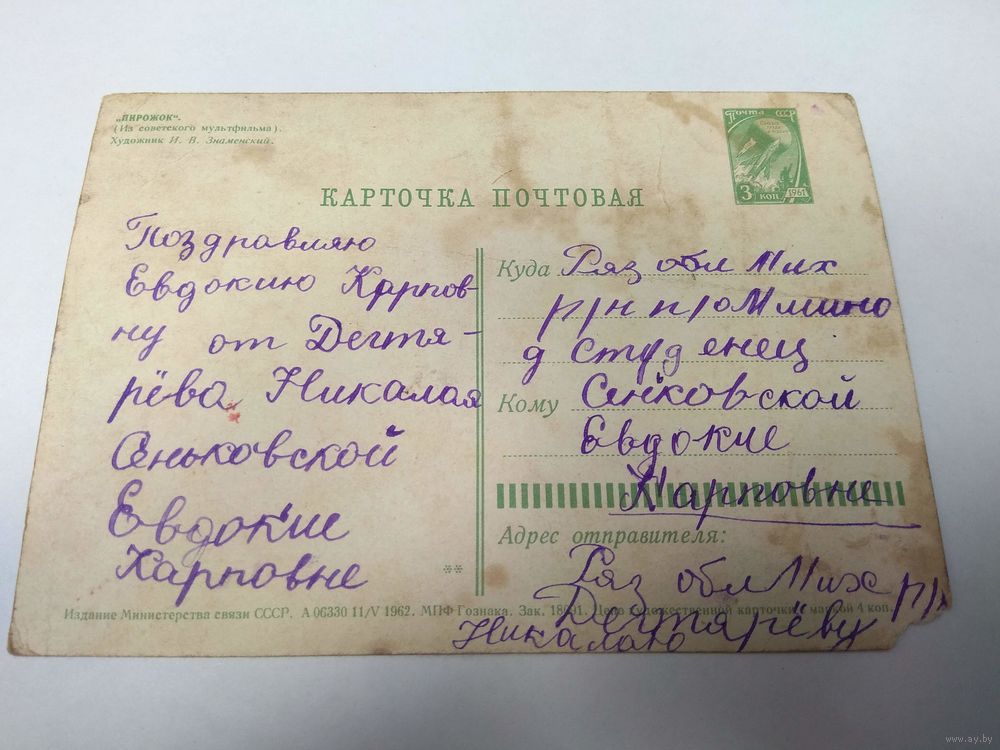 „ПИРОЖОК".
(Из советского мультфильма).
Художник И. В. Знаменский.
Почта СССР
3 коп. 1961
КАРТОЧКА ПОЧТОВАЯ
Поздравляю
Евдокию Карпов-
ну от Дегтя-
рёва Никалая
Сеньковской
Евдокие
Карповне
**
Куда Ряз обл Мих
р/н п/о Мишино
д студенец
Кому Сенковской
Евдокие
Карповне
Адрес отправителя:
Ряз обл Мих р/н
Дегтярёву
Никалаю
Издание Министерства связи СССР. А 06330 11/V 1962. МПФ Гознака. Зак. Цена художественной карточки с маркой 4 коп.
www.ay.by